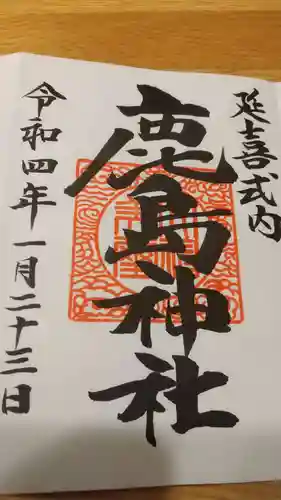 延喜式内
鹿島神社
令和四年一月二十三日